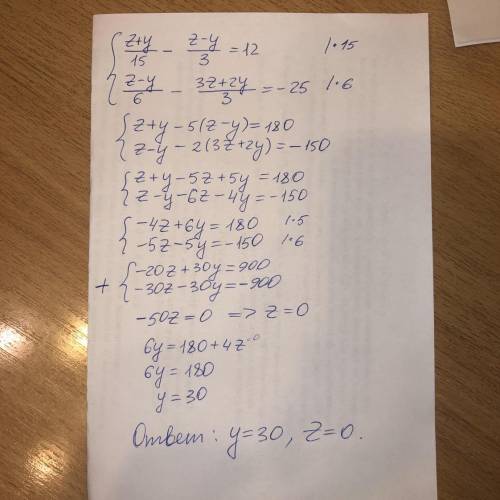 { (z+y)/15 - (z-y)/3 = 12 | · 15
(z-y)/6 - (3z+2y)/3 = -25 | · 6
{ z+y - 5(z-y) = 180
z-y - 2(3z+2y) = -150
{ z+y-5z+5y = 180
z-y-6z-4y = -150
{ -4z+6y = 180 | · 5
-5z-5y = -150 | · 6
+ { -20z+30y = 900
-30z-30y = -900
-50z = 0 => z = 0
6y = 180 + 4z →0
6y = 180
y = 30
Ответ: y=30, z=0.